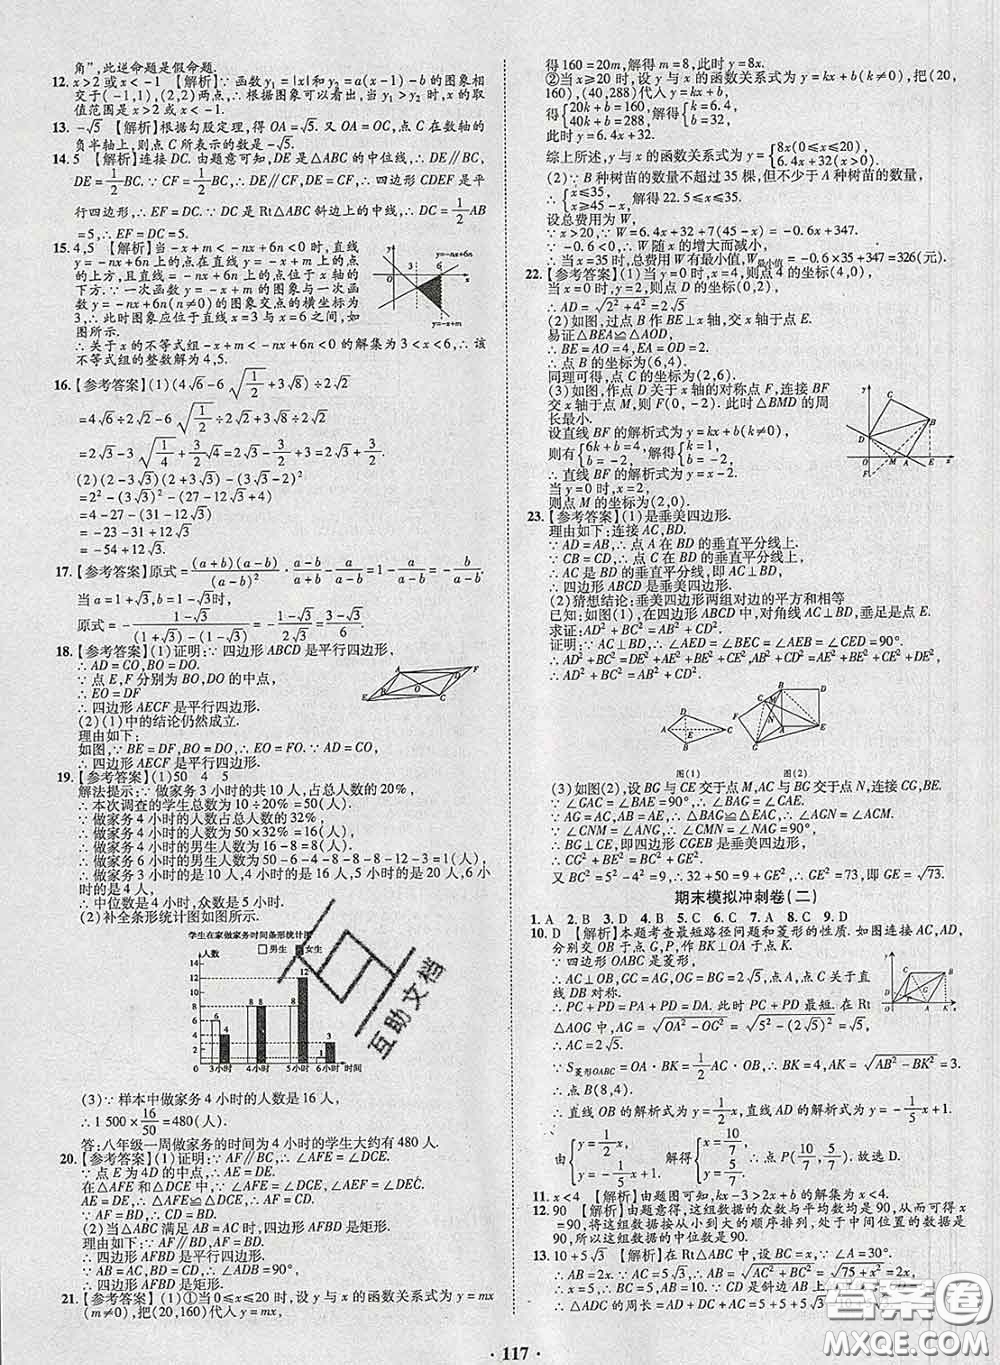 角”,此逆命题是假命题.
12. x>2或x<-1 【解析】∵函数y₁=|x|和y₂=a(x-1)-b的图象相
交于(-1,1),(2,2)两点,∴根据图象可以看出,当y₁>y₂时,x的取
值范围是x>2或x<-1.
13. -√5 【解析】根据勾股定理,得OA=√5.又OA=OC,点C在数轴的
负半轴上,则点C所表示的数是-√5.
14. 5 【解析】连接DC.由题意可知,DE是△ABC的中位线,∴DE∥BC,
DE=1/2BC.∵CF=1/2BC,∴DE∥CF,DE=CF,∴四边形CDEF是平
行四边形,∴EF=DC.∵DC是Rt△ABC斜边上的中线,∴DC=1/2AB
=5,∴EF=DC=5.
15. 4,5 【解析】当-x+m<-nx+6n<0时,直线
y=-nx+6n上的点在直线y=-x+m上的点
的上方,且直线y=-nx+6n上的点位于x轴的
下方.∵一次函数y=-x+m的图象与一次函
数y=-nx+6n(n≠0)的图象交点的横坐标为
3,∴此时图象应位于直线x=3与x=6之间,如
图所示.
∴关于x的不等式组-x+m<-nx+6n<0的解集为3<x<6,∴该
不等式组的整数解为4,5.
3 6 y=-nx+6n x y=-x+m
16.【参考答案】(1)(4√6-6√(1/2)+3√8)÷2√2
=4√6÷2√2-6√(1/2)÷2√2+3√8÷2√2
=2√3-3√(1/4)+3/2√4=2√3-3/2+3=2√3+3/2.
(2)(2-√3)(2+√3)-(2√3-√3)²
=2²-(√3)²-(√3)²
=4-27-(31-12√3)
=-23-31+12√3
=-54+12√3.
17.【参考答案】原式=(a+b)(a-b)/(a-b)²·(a-b)/a-b/(a-b)=(a+b)/a-b/(a-b)
当a=1+√3,b=1-√3时,
原式=-(1-√3)/((1+√3)-(1-√3))=-(1-√3)/2√3=(3-√3)/6.
18.【参考答案】(1)证明:∵四边形ABCD是平行四边形,
∴AD=CO,BO=DO.
∵点E,F分别为BO,DO的中点,
∴EO=DF
∴四边形AECF是平行四边形.
(2)(1)中的结论仍然成立.
理由如下:
如图,∵BE=DF,BO=DO,∴EO=FO.
∴四边形AECF是平行四边形.
19.【参考答案】(1)50 4 5
解法提示:∵做家务3小时的共10人,占总人数的20%,
∴本次调查的学生总数为10÷20%=50(人).
∵做家务4小时的人数占总人数的32%,
∴做家务4小时的人数为50×32%=16(人).
∴做家务4小时的男生人数为16-8=8(人).
∴做家务6小时的男生人数为50-6-4-8-8-8-12-3=1(人).
∵做家务3小时的是10人,4小时的是16人,5小时的是20人,6小
时的是4人,
∴中位数是4小时,众数是5小时.
(2)补全条形统计图如图所示.
学生在家做家务时间条形统计图
人数 □男生 ■女生
14 12 10 8 6 4 2 0
6 4 8 8 8 12 1 3
3小时 4小时 5小时 6小时 时间
(3)∵样本中做家务4小时的人数是16人,
∴1 500×16/50=480(人).
答:八年级一周做家务的时间为4小时的学生大约有480人.
20.【参考答案】(1)证明:∵AF∥BC,∴∠AFE=∠DCE.
∵点E为AD的中点,∴AE=DE.
在△AFE和△DCE中,∵∠AFE=∠DCE,∠AEF=∠DEC,
AE=DE,∴△AFE≌△DCE.
∴AF=CD.
∵AF=BD,∴BD=CD.
(2)当△ABC满足AB=AC时,四边形AFBD是矩形.
理由如下:∵AF∥BD,AF=BD,
∴四边形AFBD是平行四边形.
∵AB=AC,BD=CD,∴∠ADB=90°.
∴四边形AFBD是矩形.
21.【参考答案】(1)①当0≤x≤20时,设y与x的函数关系式为y=mx
(m≠0),把(20,160)代入y=mx,
得160=20m,解得m=8,此时y=8x.
②当x≥20时,设y与x的函数关系式为y=kx+b(k≠0),把(20,
160),(40,288)代入y=kx+b,
得{20k+b=160, 40k+b=288,解得{k=6.4, b=32.
此时y=6.4x+32.
综上所述,y与x的函数关系式为y={8x(0≤x≤20), 6.4x+32(x>20).
(2)∵B种树苗的数量不超过35棵,但不少于A种树苗的数量,
∴{x≤35, x≥45-x,解得22.5≤x≤35.
设总费用为W,
∵x>20,∴W=6.4x+32+7(45-x)=-0.6x+347.
∵-0.6<0,∴W随x的增大而减小,
∴当x=35时,总费用W有最小值,W最小值=-0.6×35+347=326(元).
22.【参考答案】(1)当y=0时,x=4,则点A的坐标(4,0),
当x=0时,y=2,则点D的坐标(0,2),
∴AD=√(2²+4²)=2√5
(2)如图,过点B作BE⊥x轴,交x轴于点E.
易证△BEA≌△AOD,
∴BE=AO=4,AE=OD=2.
∴点B的坐标为(6,4).
同理可得,点C的坐标为(2,6).
(3)如图,作点D关于x轴的对称点F,连接BF
交x轴于点M,则F(0,-2).此时△BMD的周
长最小.
设直线BF的解析式为y=kx+b(k≠0),
则有{6k+b=4, b=-2,解得{k=1, b=-2.
∴直线BF的解析式为y=x-2.
当y=0时,x=2.
∴点M的坐标为(2,0).
23.【参考答案】(1)是垂美四边形.
理由如下:连接AC,BD.
∵AD=AB,∴点A在BD的垂直平分线上.
∵CB=CD,∴点C在BD的垂直平分线上.
∴AC是BD的垂直平分线,即AC⊥BD.
∴四边形ABCD是垂美四边形.
(2)猜想结论:垂美四边形两组对边的平方和相等
已知:如图(1),在四边形ABCD中,对角线AC⊥BD,垂足是点E.
求证:AD²+BC²=DC²+AB².
证明:∵AC⊥BD,∴∠AED=∠BEC=∠AEB=∠CED=90°,
∴AD²+BC²=DE²+AE²+BE²+CE²,AB²+DC²=AE²+BE²+DE²+CE²,
∴AD²+BC²=AB²+DC².
图(1) 图(2)
(3)如图(2),设BG与CE交于点M,AC与BG交于点N,连接CG,BE.
∵∠GAC=∠BAE=90°,∴∠BAG=∠CAE.
∵AG=AC,AB=AE,∴△BAG≌△EAC,∴∠AGN=∠ACM.
∵∠CNM=∠ANG,∴∠CMN=∠NAG=90°,
∴BG⊥CE,即四边形CGEB是垂美四边形.
∴CG²+BE²=BC²+GE².
又BC²=BE²=50,CG²=32,∴32+50=9+GE²,∴GE=√73.
期末模拟冲刺卷(二)
1. A 2. B 3. D 4. C 5. C 6. A 7. A 8. C 9. D
10. D 【解析】本题考查最短路径问题和菱形的性质.如图连接AC,AD,
分别交OB于点G,P,作BK⊥OA于点K.
∵四边形OABC是菱形,
∴AC⊥OB,GC=AG,OG=BG=2√5,点A,C关于直
线DB对称.
∴PC+PD=PA+PD=DA.此时PC+PD最短.在Rt
△AOG中,AG=√(OA²-OG²)=√(5²-(2√5)²)=√5,
∴AC=2√5.
∵S菱形OABC=OA·BK=1/2AC·OB,∴BK=4,AK=√(AB²-BK²)=3.
∴点B(8,4).
∴直线OB的解析式为y=1/2x,直线AD的解析式为y=-1/5x+1.
由{y=1/2x, y=-1/5x+1,解得{x=10/7, y=5/7.∴点P(10/7,5/7).故选D.
11. x<4 【解析】由题图可知,kx-3>2x+b的解集为x<4.
12. 90 【解析】由题意得,这组数据的众数与平均数均为90,可求得x
=90,将这组数据按从小到大的顺序排列,处于中间位置的数是
90,所以这组数据的中位数是90.
13. 10+5√3 【解析】在Rt△ABC中,设BC=x,∵∠A=30°.
∴AB=2BC=2x,∴AB=√(AC²+BC²)=√(75+x²)=2x,
∴x=5,∴BC=5,AB=10.
∴△ADC的周长=AD+DC+AC=
· 117 ·
互助文档
答案圈
MXQE.COM